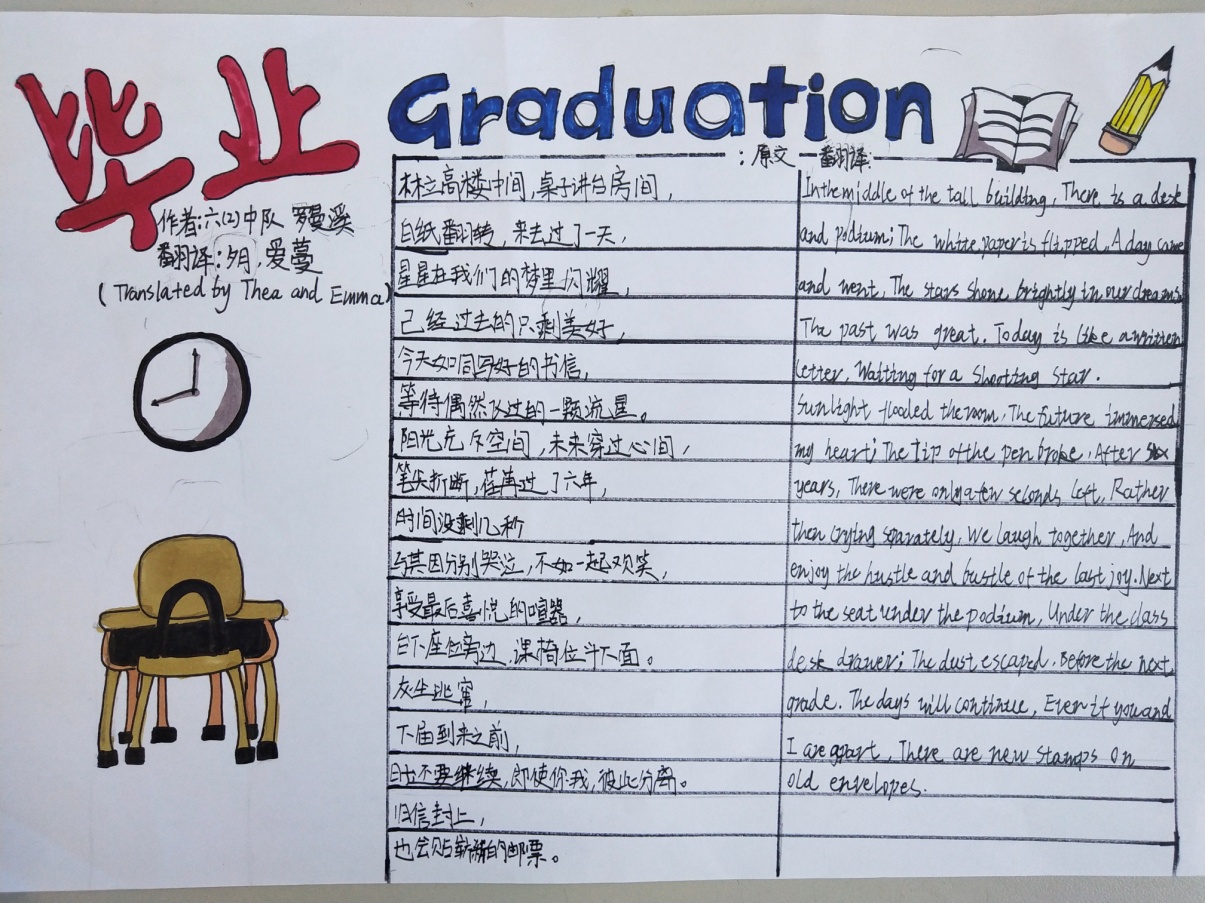 毕业
Graduation
作者:六(2)中队 罗曼溪
翻译:夕月,爱蔓
(Translated by Thea and Emma)
:原文
翻译:
林立高楼中间,桌子讲台房间,
白纸翻转,来去过了一天,
星星在我们的梦里闪耀,
己经过去的只剩美好,
今天如同写好的书信,
等待偶然
过的一颗流星。
阳光充斥空间,未来穿过心间,
笔尖折断,荏苒过了六年,
时间没剩几秒
与其因分别哭泣,不如一起欢笑,
享受最后喜悦的喧嚣,
台下座位旁边,课椅位斗下面。
灰尘逃窜,
下届到来之前,
日七不要继续,即使你我,彼此分离。
旧信封上,
也会贴崭新的邮票。
In the middle of the tall building, There is a desk
and podium; The white paper is flipped, A day came
and went, The stars shone brightly in our dreams
The past was great. Today is like a written
letter, Waiting for a Shooting Star.
Sunlight flooded the room, The future immersed
my heart; The Tip of the pen broke, After six
years, There were only a few seconds left, Rather
then crying separately, We laugh together, And
enjoy the hustle and bustle of the last joy. Next
to the seat under the podium, Under the class
desk drawer; The dust escaped. Before the next
grade. The days will continue, Ever if you and
I are apart, There are new stamps on
old envelopes.